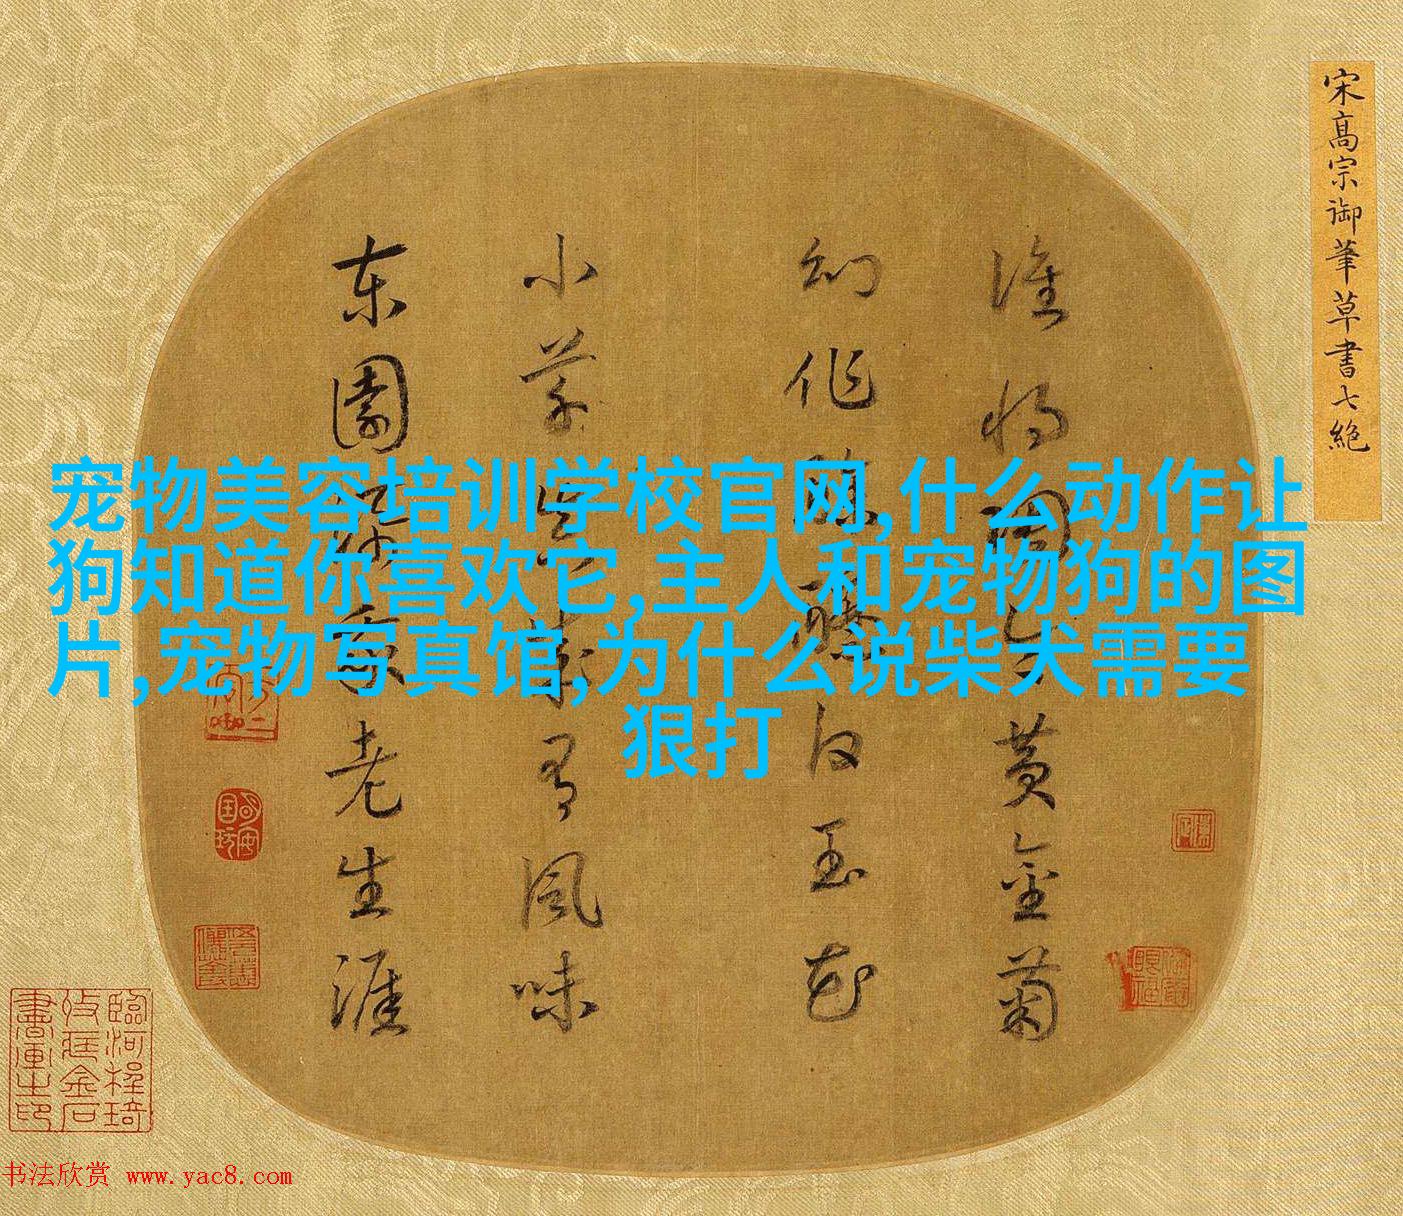 宋高宗御筆草書七絶
誰将陶令黄金菊
幻作酴醿白玉花
小草真成有風味
东園添我老生涯
宠物美容培训学校官网,什么动作让
狗知道你喜欢它,主人和宠物狗的图
片,宠物写真馆,为什么说柴犬需要
狠打
书法欣赏 www.yac8.com